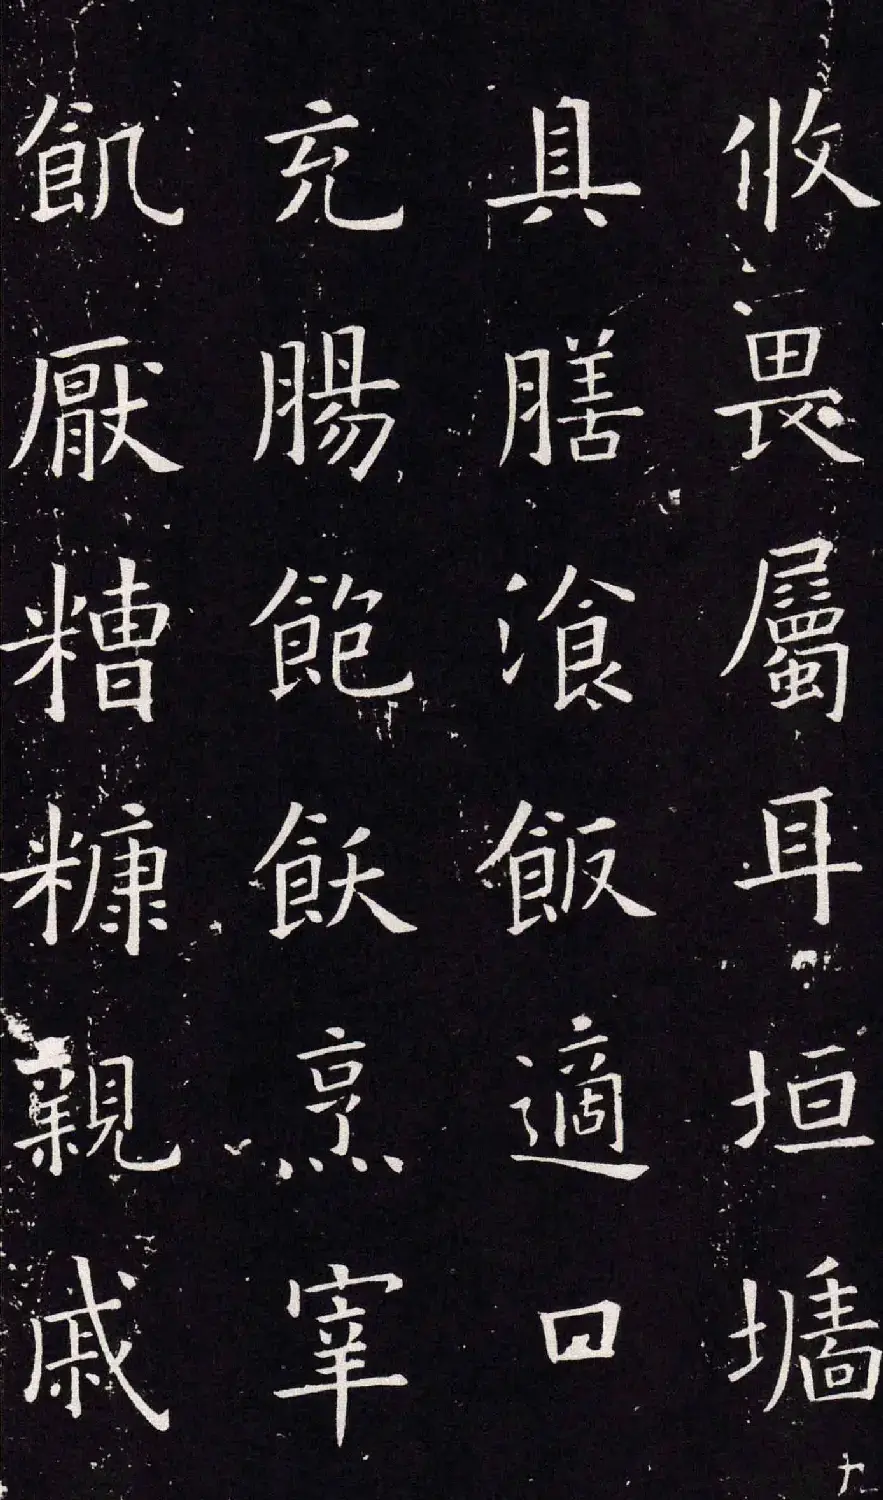 攸畏屬耳垣墻
九
具膳湌飯適口
充腸飽飫烹宰
飢厭糟糠親戚